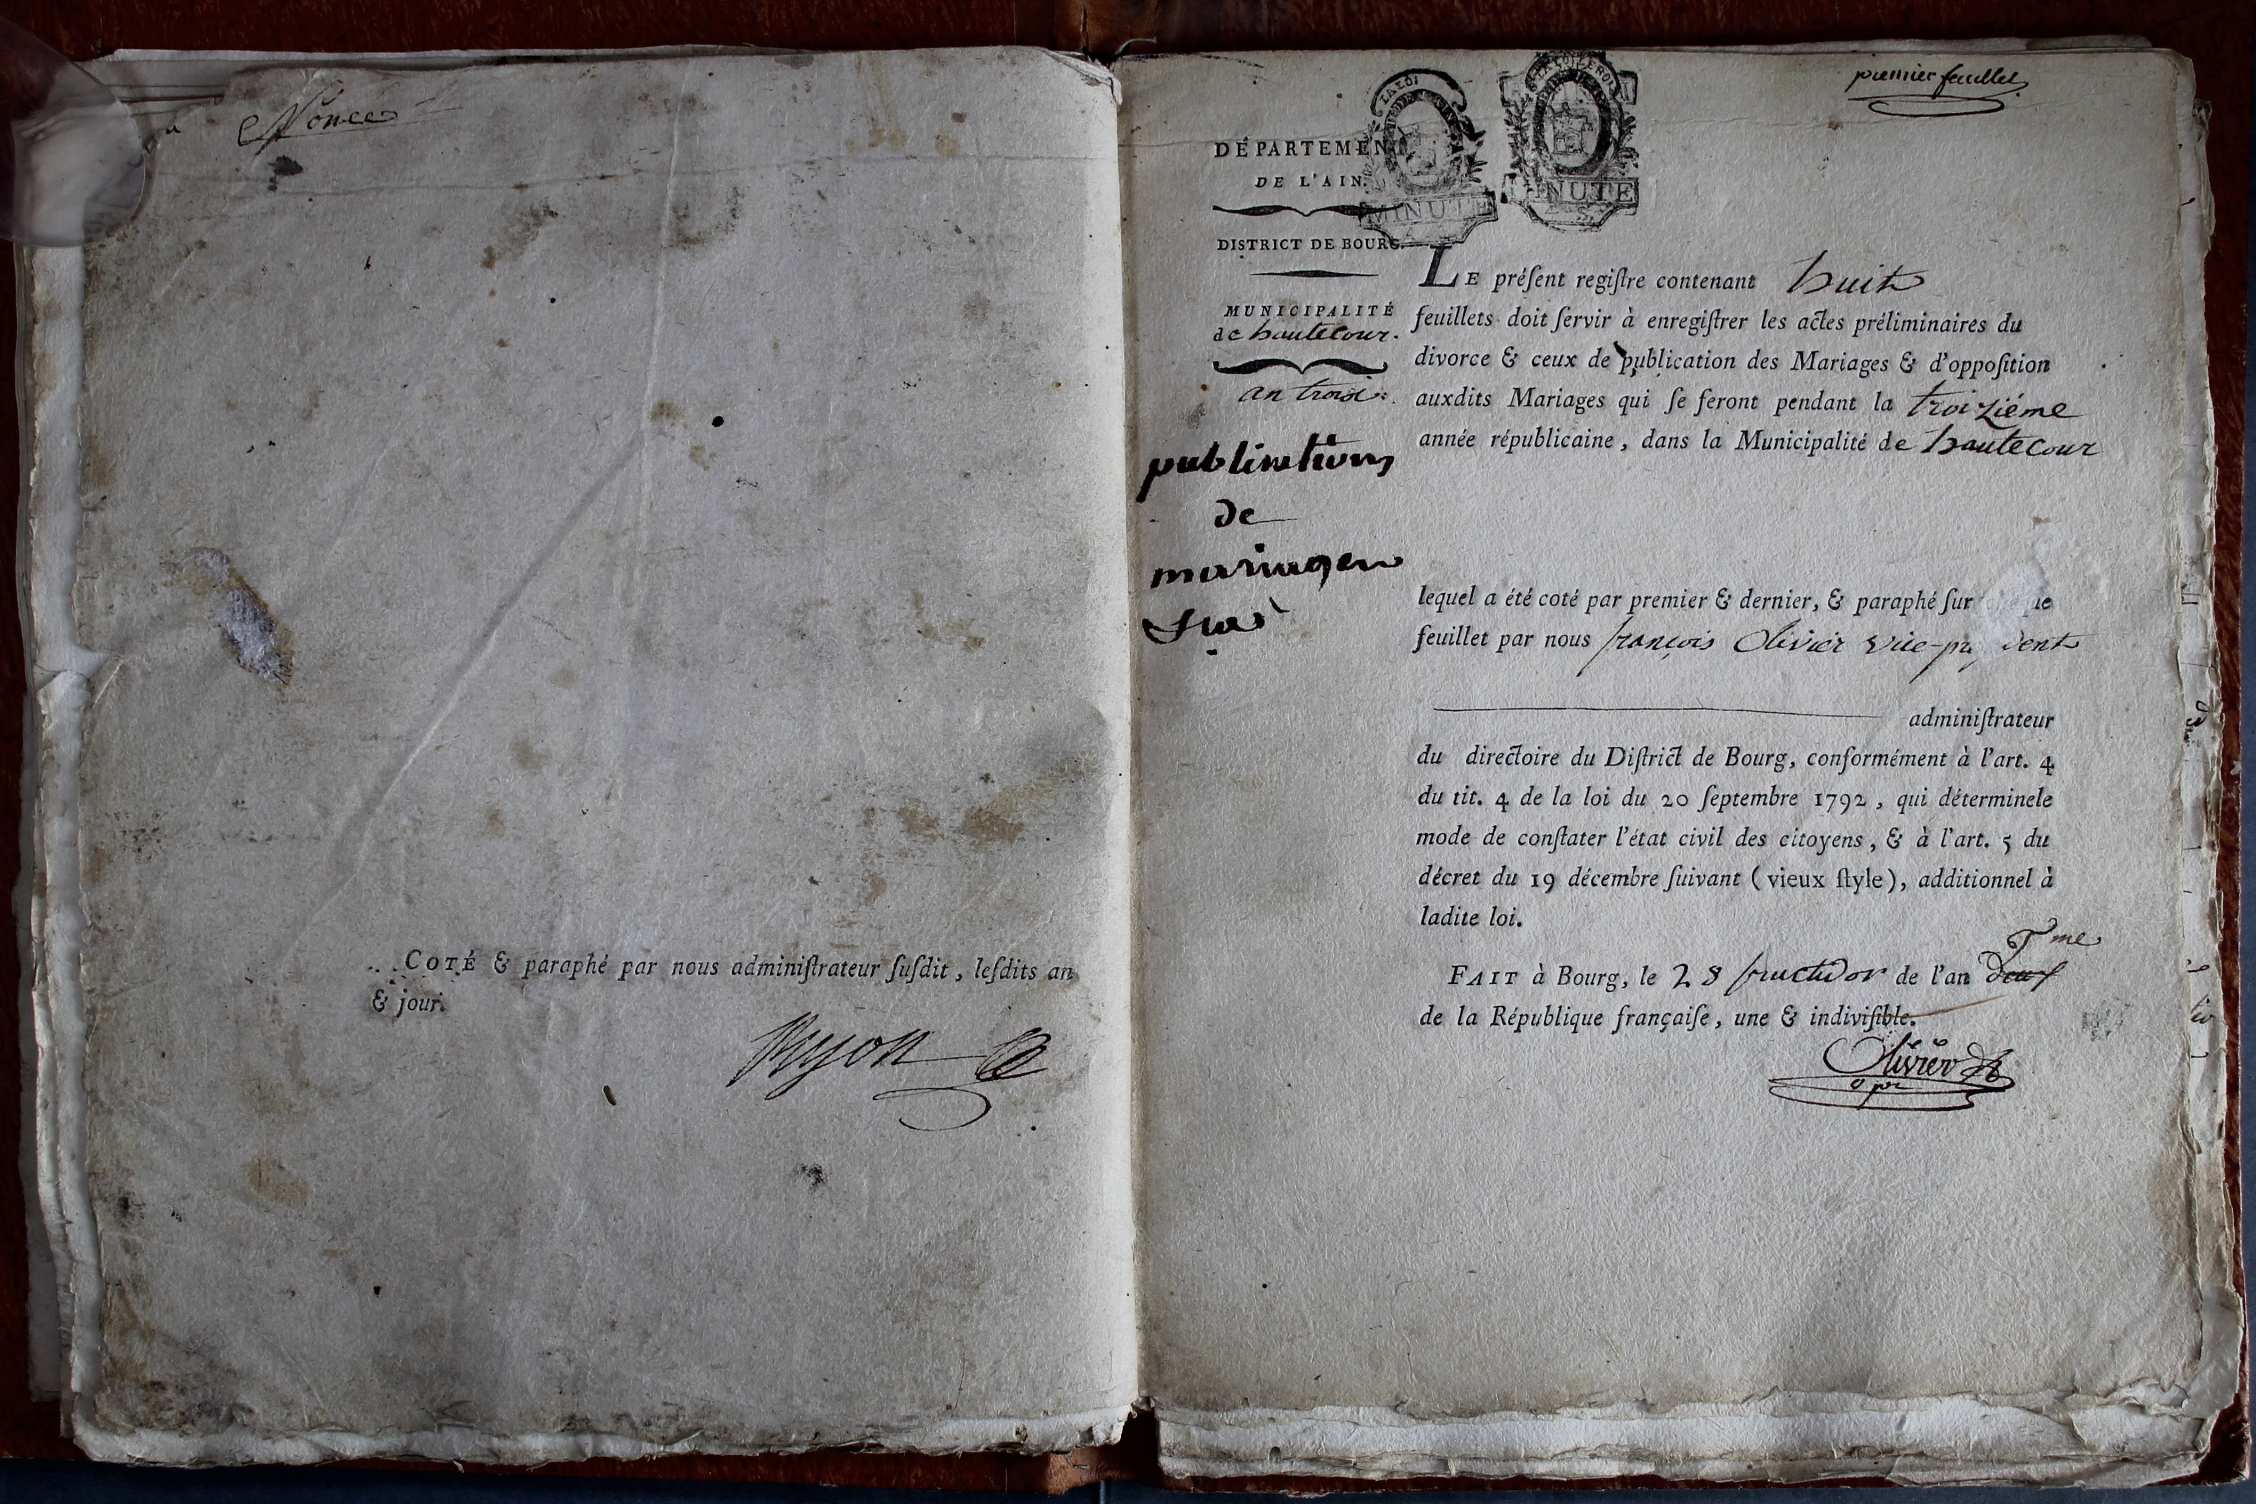 COTÉ & paraphé par nous administrateur susdit, lesdits an
& jour.
premier feuillet
LA LOI
MINUTE
MINUTE
DÉPARTEMEN
DE L'AIN.
DISTRICT DE BOURG.
MUNICIPALITÉ
de hautecour.
an trois.
publications
de
mariages
LE présent registre contenant huit
feuillets doit servir à enregistrer les actes préliminaires du
divorce & ceux de publication des Mariages & d'opposition
auxdits Mariages qui se feront pendant la troiziéme
année républicaine, dans la Municipalité de hautecour
lequel a été coté par premier & dernier, & paraphé sur
feuillet par nous françois Olivier vice-pr dent
administrateur
du directoire du District de Bourg, conformément à l'art. 4
du tit. 4 de la loi du 20 septembre 1792, qui déterminele
mode de constater l'état civil des citoyens, & à l'art. 5 du
décret du 19 décembre suivant (vieux style), additionnel à
ladite loi.
FAIT à Bourg, le 28 fructidor de l'an deux
de la République française, une & indivisible.
Olivier